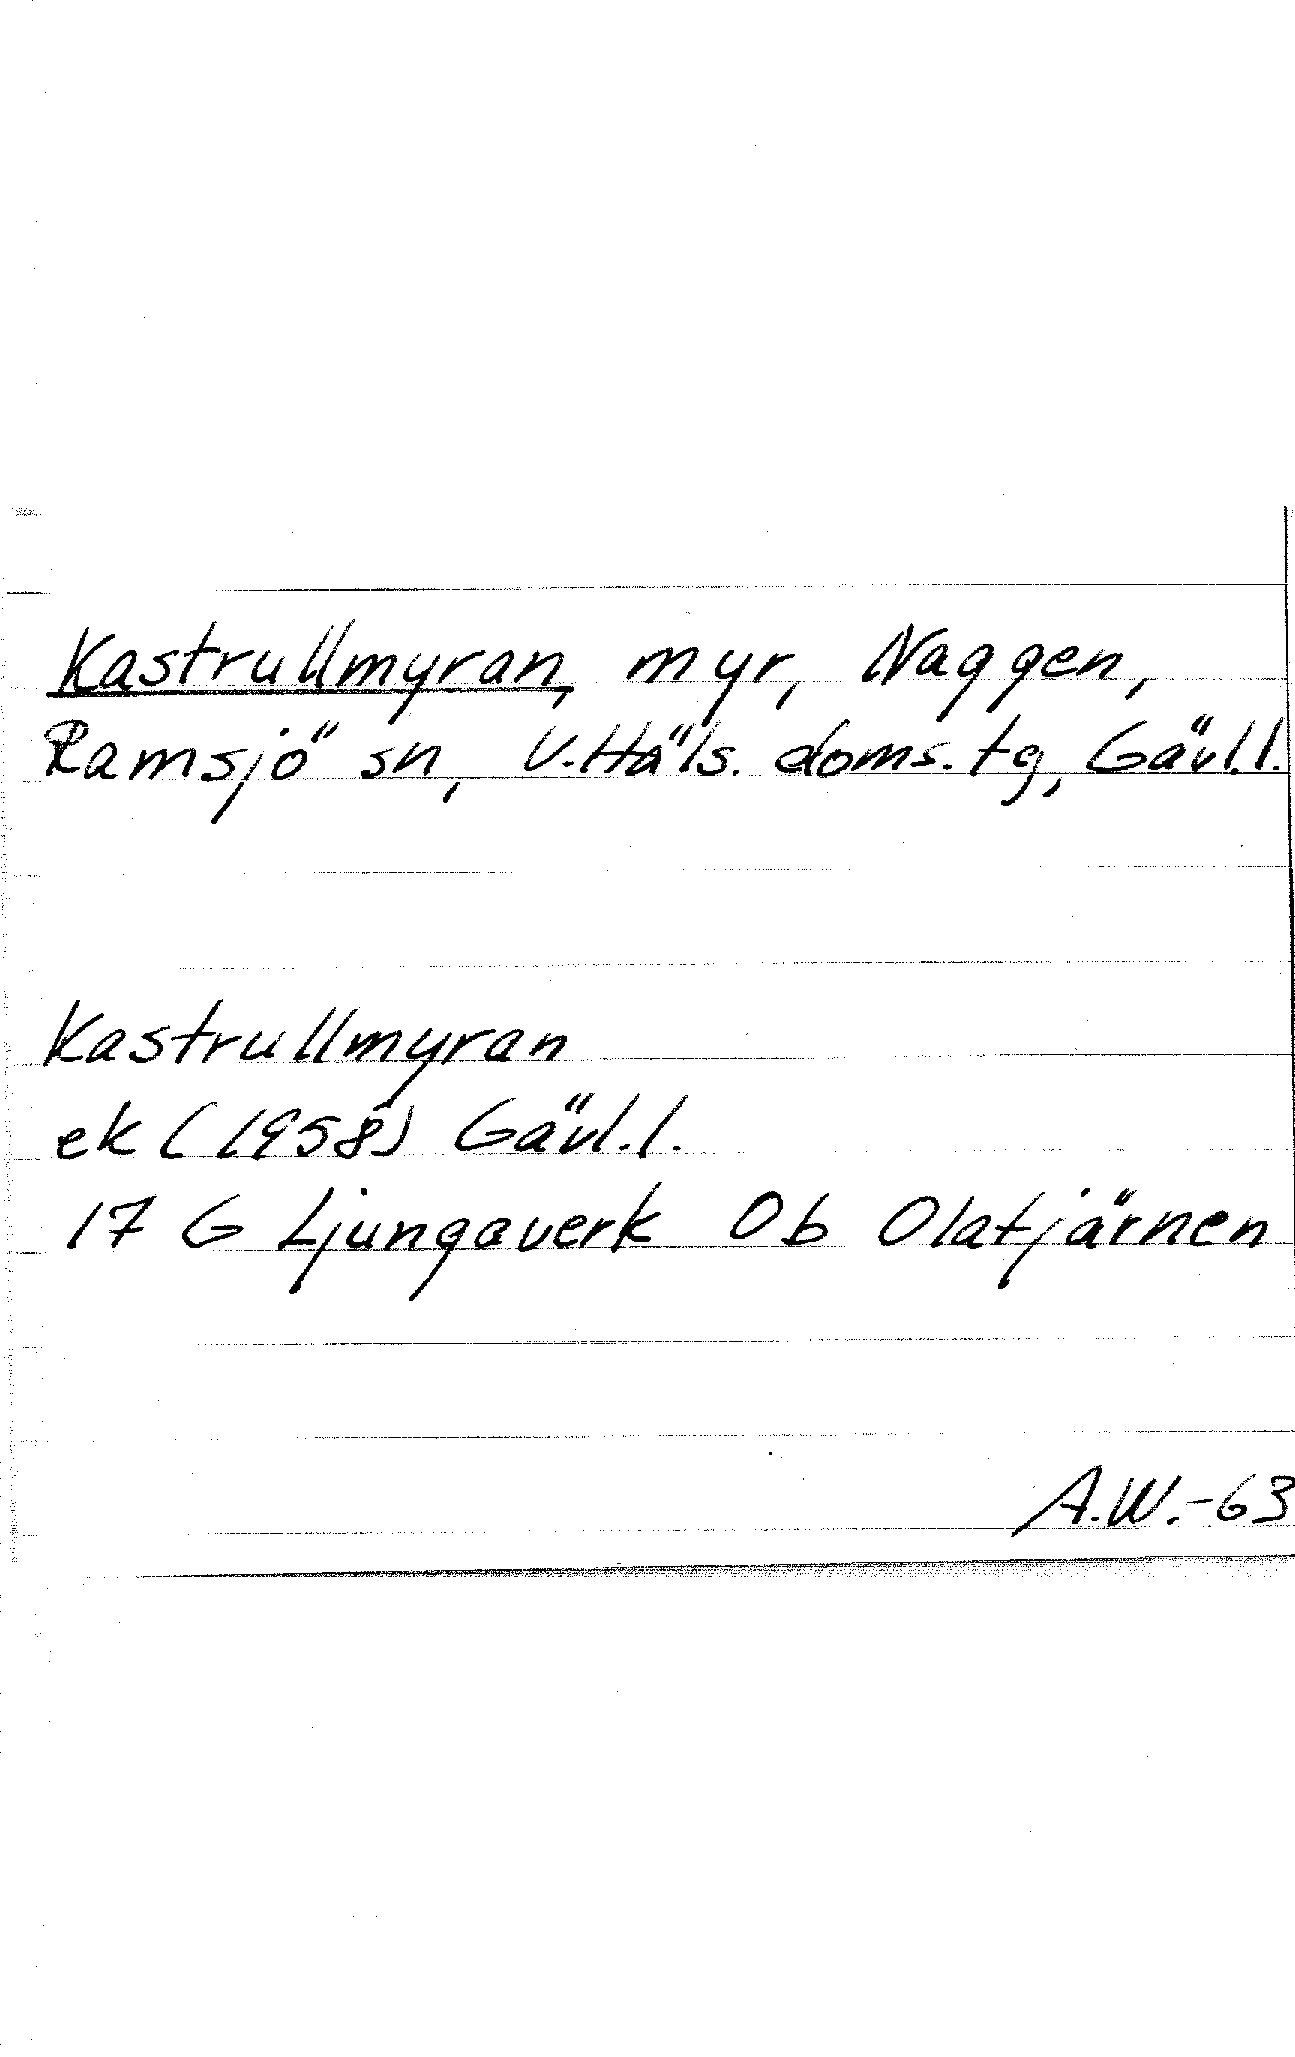 Kastrullmyran, myr, Naggen,
Ramsjö sn, V.Häls. doms.tg, Gävl.l.
Kastrullmyran
ek (1958) Gävl.l.
17 G Ljungaverk 0b Olatjärnen
A.W.-63